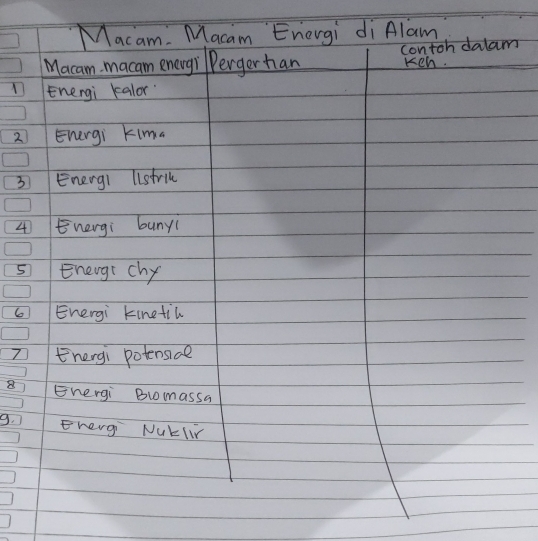 Macam-Macam Energi di Alam
Macam-macam energi Pengertian contoh dalam keh.
1 Energi kalor
2 Energi kimia
3 Energi listrik
4 Energi bunyi
5 Energi chy
6 Energi kinetik
7 Energi potensial
8 Energi Biomassa
9. Energi Nuklir